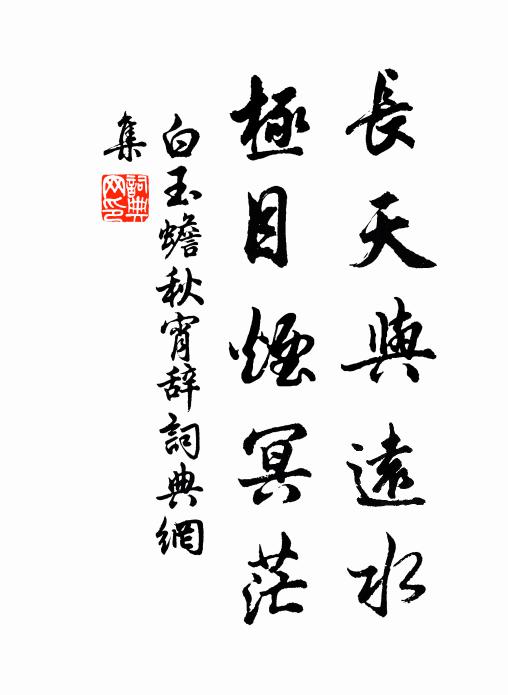 長天與遠水
極目煙冥茫
白玉蟾秋宵辭詞典網
集
詞典
网印